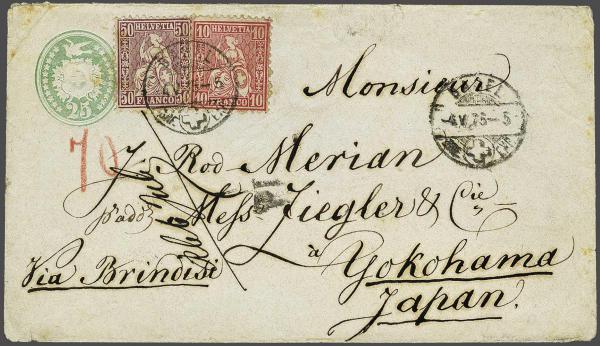 50 HELVETIA 50
50 FRANCO 50
10 HELVETIA 10
10 FRANCO 10
25
Monsieur
BASEL
4 V 75 - 5
70
J. Rod Merian
p. add. Mess. Ziegler & Cie
à
Via Brindisi
Yokohama
Japan.